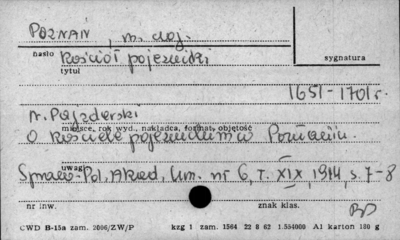 POZNAŃ, m. woj.
hasło Kościół pojezuicki
sygnatura
tytuł
1651-1701 r.
N. Pajzderski
miejsce, rok wyd., nakładca, format, objętość
O kościele pojezuickim w Poznaniu.
uwagi
Spraw. Pol. Akad. Um. nr 6, T. XIX, 1914, s. 7-8
nr inw.
znak klas.
CWD B-15a zam. 2006/ZW/P kzg 1 zam. 1564 22 8 62 1.584000 A1 karton 180 g